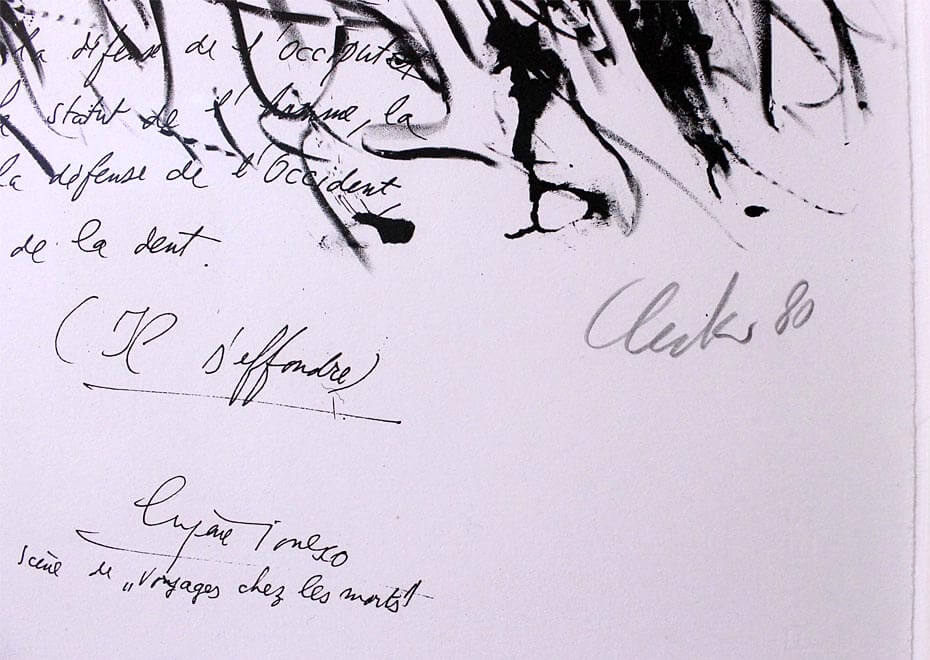 la défense de l'occiput et
statut de l'homme, la
la défense de l'Occident
de la dent.
(Il s'effondre)
80
Eugène Ionesco
scène de „Voyages chez les morts"